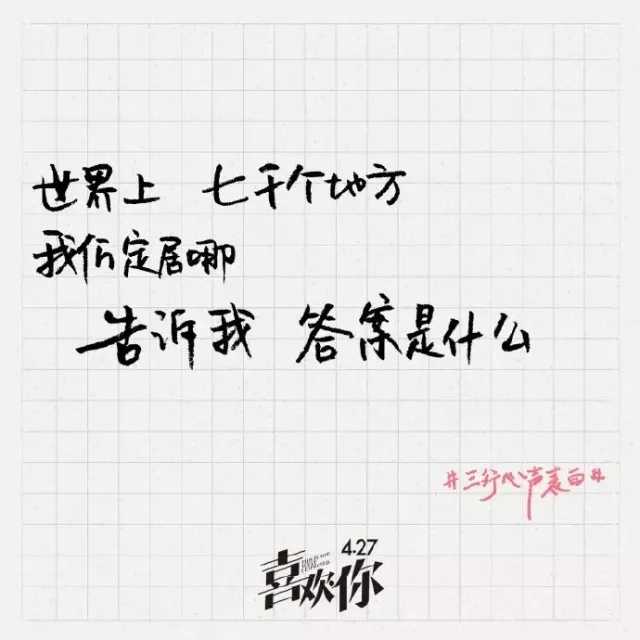 世界上 七千个地方
我们定居哪
告诉我 答案是什么
#三行心声表白#
4.27
喜欢·你